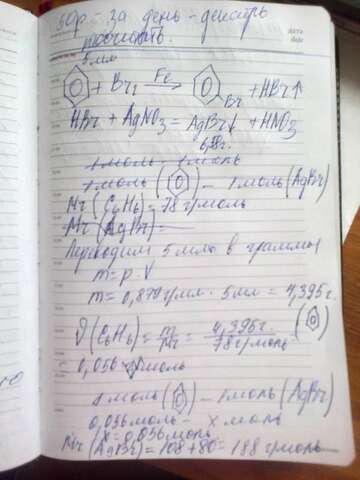 за день -
5 мл
+ Br₂ Fe → Br + HBr↑
HBr + AgNO₃ = AgBr↓ + HNO₃
1 моль - 1 моль
1 моль ( ) - 1 моль (AgBr)
Mr (C₆H₆) = 78 г/моль
Mr (AgBr) =
Переводим 5 мл в граммы
m = ρ · V
m = 0,879 г/мл · 5 мл = 4,395 г.
ν (C₆H₆) = m/Mr = 4,395 г./78 г/моль ( ) =
0,056 моль
1 моль ( ) - 1 моль (AgBr)
0,056 моль - x моль
x = 0,056 моль
Mr (AgBr) = 108 + 80 = 188 г/моль